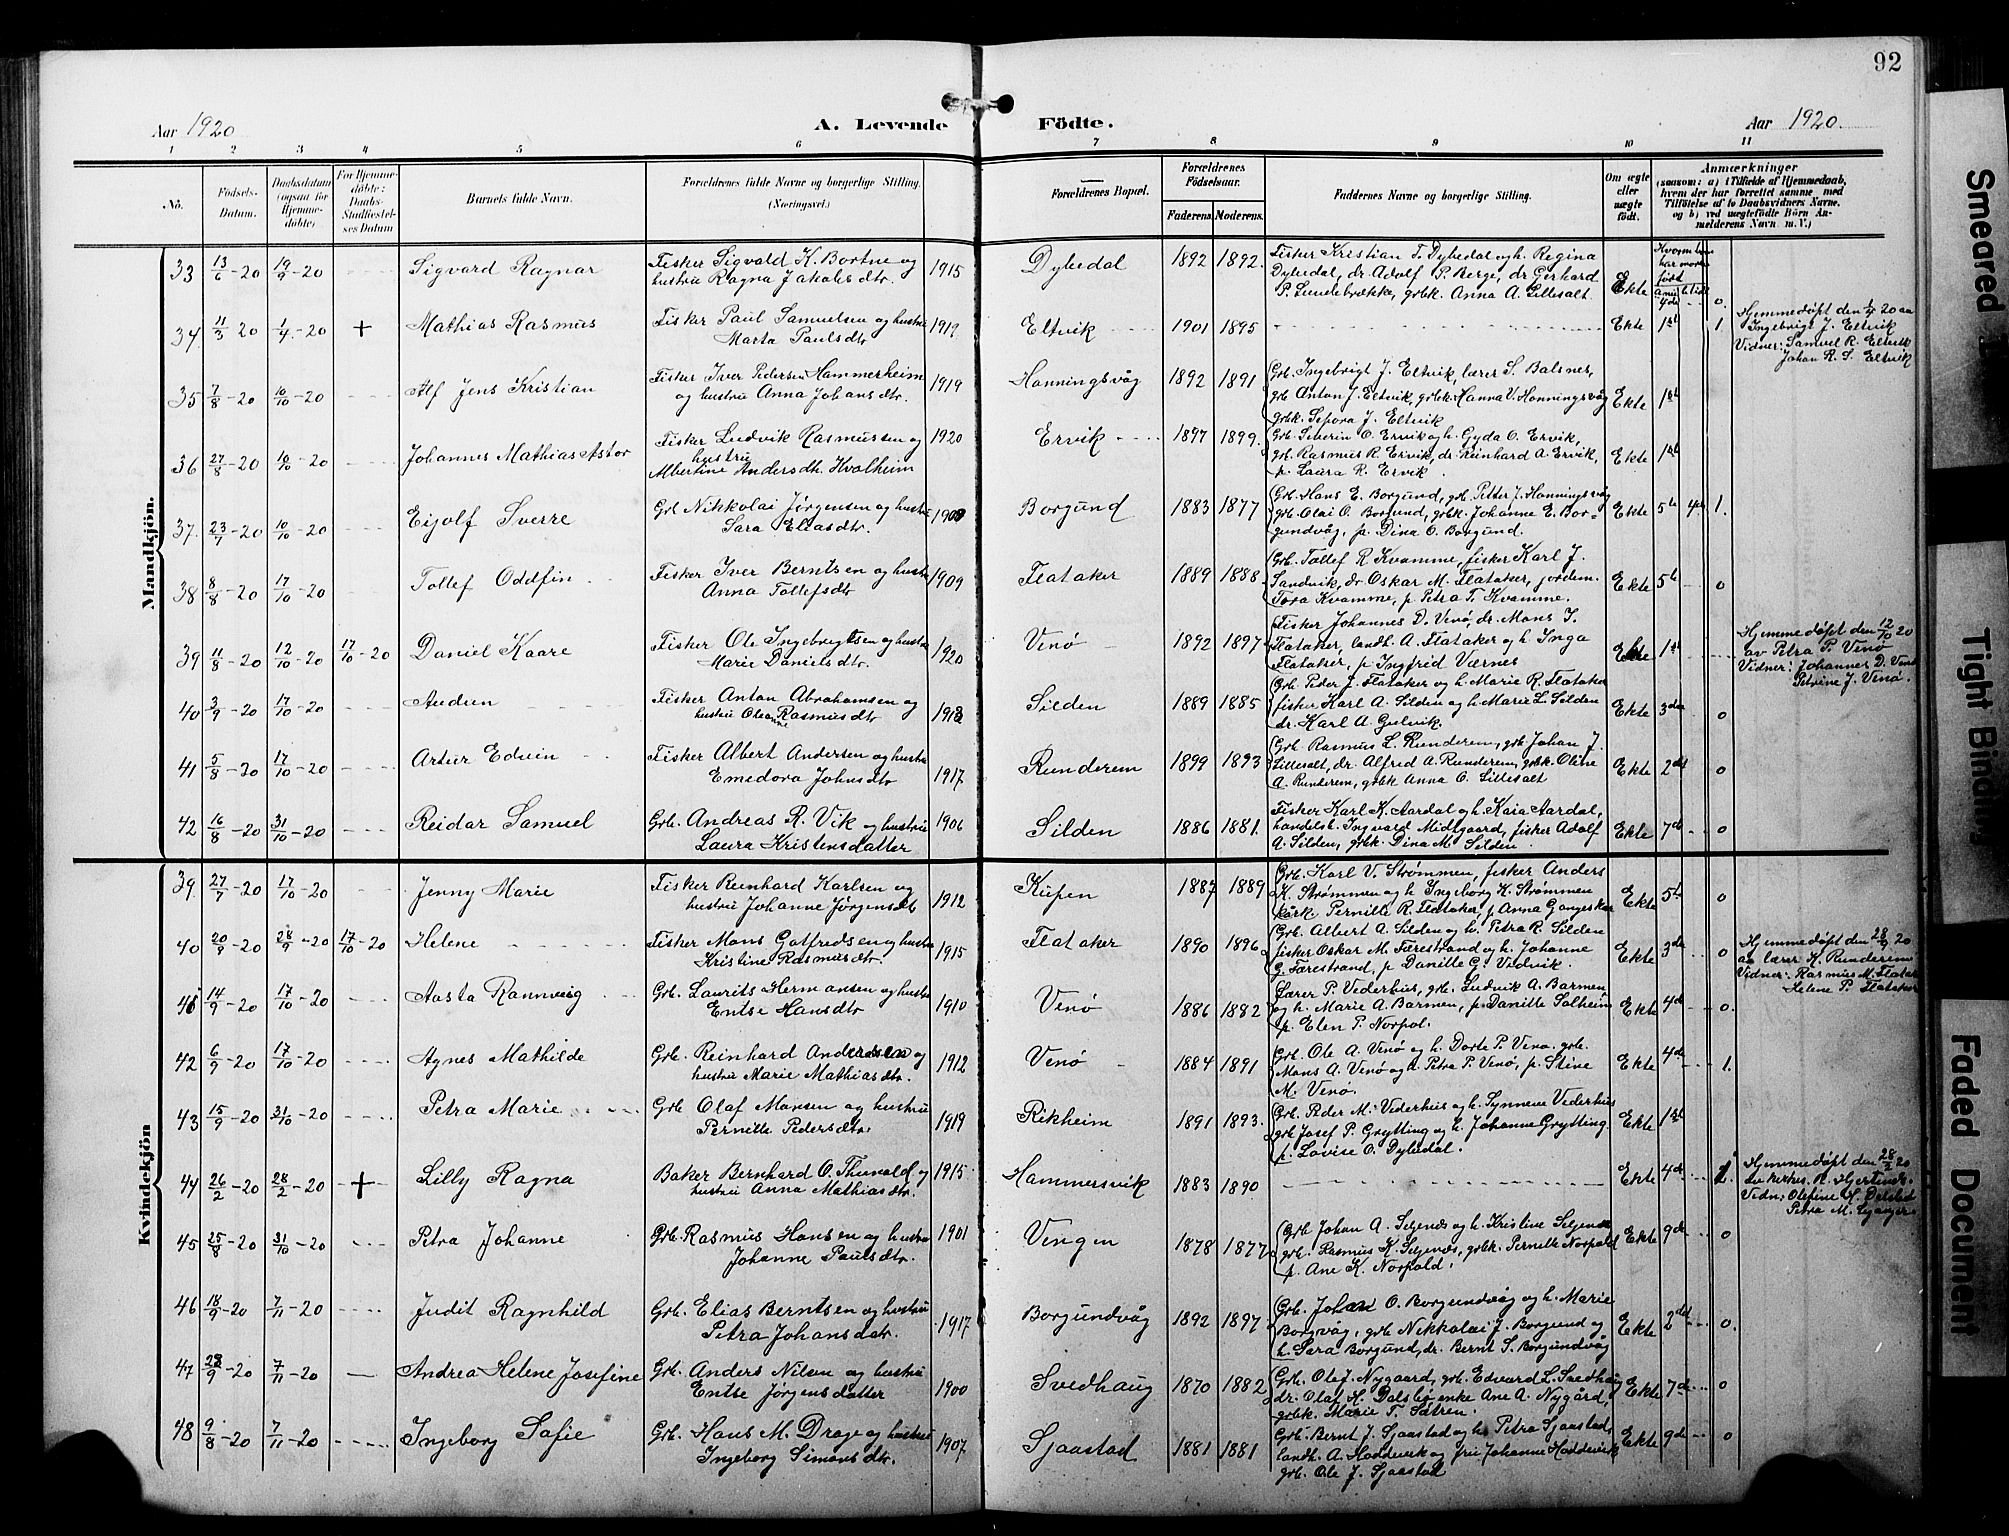 92
Aar 1920
A. Levende
Födte.
Aar 1920.
1 2 3 4 5 6 7 8 9 10 11
No.
Födsels-
Datum.
Daabsdatum
(ogsaa for
Hjemme-
döbte)
For Hjemme-
döbte:
Daabs-
Stadfæstel-
ses Datum
Barnets fulde Navn.
Forældrenes fulde Navne og borgerlige Stilling.
(Næringsvei.)
Forældrenes Bopæl.
Forældrenes
Födselsaar.
Faderens Moderens.
Faddernes Navne og borgerlige Stilling.
Om ægte
eller
uægte
født.
Anmærkninger
(saasom: a) i Tilfælde af Hjemmedaab,
hvem der har forrettet samme, med
Tilföielse af to Daabsvidners Navne,
og b) ved uægtefödte Börn An-
melderens Navn m. V.)
Mandkjön.
33 13/6-20 19/9-20 Sigvard Ragnar
Fisker Sigvald K. Bortne og
hustru Ragna Jakobsdtr. 1915
Dybedal 1892 1892.
Fisker Kristian T. Dybedal og h. Regina
Dybedal, dr. Adolf P. Berge, dr. Gerhard
P. Lundebrække, grbk. Anna A. Lillesalt
Ekte 4de 0.
34. 11/3-20 1/4-20 + Mathias Rasmus
Fisker Paul Samuelsen og hustru
Marta Paulsdtr. 1919
Eltvik 1901 1895
Ekte 1st 1.
Hjemmedøpt den 1/4 20 av
Ingebrigt J. Eltvik
Vidner: Samuel R. Eltvik
Johan R. S. Eltvik
35 7/8-20 10/10-20 Alf Jens Kristian
Fisker Iver Pedersen Hammerheim
og hustru Anna Johansdtr. 1919
Honningsvåg 1892 1891
Grb. Ingebrigt J. Eltvik, lærer S. Balsnes,
grb Anton J. Eltvik, grbk. Hanna V. Honningsvåg
grbk. Sepora J. Eltvik
Ekte 1st
36 27/8-20 10/10-20 Johannes Mathias Astor
Fisker Ludvik Rasmussen og
hustru
Albertine Andersdtr. Hvalheim 1920
Ervik 1897 1899.
Grb. Severin O. Ervik og h. Gyda O. Ervik,
grb. Rasmus R. Ervik, dr. Reinhard A. Ervik,
p. Laura R. Ervik.
Ekte 1st
37. 23/7-20 10/10-20 Eijolf Sverre
Grb Nikkolai Jørgensen og hustru
Sara Eliasdtr. 1908
Borgund 1883 1877
Grb. Hans E. Borgund, grb. Petter J. Honningsvåg
grb. Olai O. Borgund, grbk. Johanne E. Bor-
gundvåg, p. Dina O. Borgund.
Ekte 5te 1.
38 8/8-20 17/10-20 Tollef Oddfin
Fisker Iver Berntsen og hustru
Anna Tollefsdtr 1909
Flataker 1889 1888
Grb. Tollef R Kvamme, fisker Karl J.
Sandvik, dr. Oskar M. Flataker, jordem.
Tora Kvamme, p. Petra T. Kvamme.
Ekte 5te 0
39 11/8-20 12/10-20 17/10-20 Daniel Kaare
Fisker Ole Ingebrigtsen og hustru
Marie Danielsdtr. 1920
Venø 1892 1897
Fisker Johannes D. Venø, dr. Mons I.
Flataker, landh. A. Flataker og h. Inga
Flataker, p. Ingfrid Værnes
Ekte 1st
Hjemmedøpt den 12/10 20
av Petra P. Venø
Vidner: Johannes D. Venø
Petrine J. Venø.
40 3/9-20 17/10-20 Audun
Fisker Anton Abrahamsen og
hustru Oleanne Rasmusdtr 1913
Silden 1889 1885
Grb. Peder J. Flataker og h. Marie R. Flataker
fisker Karl A. Silden og h. Marie L. Silden
dr. Karl A. Gulvik.
Ekte 3de 0
41 5/8-20 17/10-20 Artur Edvin
Fisker Albert Andersen og hustru
Emedora Johnsdtr 1917
Runderem 1899 1893
Grb. Rasmus L. Runderem, grb Johan J.
Lillesalt, dr. Alfred A. Runderem, grbk. Oline
A. Runderem, grbk Anna O. Lillesalt
Ekte 2det 0
42 16/8-20 31/10-20 Reidar Samuel
Grb. Andreas R. Vik og hustru
Laura Kristensdatter 1906
Silden 1886 1881.
Fisker Karl K. Aardal og h. Kaia Aardal,
handelsb. Ingvard Midtgaard, fisker Adolf
A. Silden, grbk. Dina M. Silden.
Ekte 7de 0
Kvindekjön
39 27/7-20 17/10-20 Jenny Marie
Fisker Reinhard Karlsen og
hustru Johanne Jørgensdtr 1912
Kupen 1887 1889
Grb. Karl V. Strømmen, fisker Anders
K. Strømmen og h. Ingeborg K. Strømmen
Pernille R. Flataker, p. Anna Gangeskar
Ekte 5te 0
40 20/9-20 28/9-20 17/10-20 Helene
Fisker Mons Gotfredsen og hustru
Kristine Rasmusdtr. 1915
Flataker 1890 1896
Grb. Albert A. Silden og h. Petra R. Silden
fisker Oskar M. Færestrand og h. Johanne
G. Færestrand, p. Danille G. Vedvik.
Ekte 3de 0
Hjemmedøpt den 28/9 20
av lærer K. Runderem
Vidner: Rasmus M. Flataker
Helene P. Flataker
41 14/9-20 17/10-20 Aasta Rannveig
Grb. Laurits Hermansen og hustru
Entse Hansdtr 1910
Venø 1886 1882
Lærer P. Vederhus, grb. Ludvik A. Barmen
og h. Marie A. Barmen, p. Danille Solheim
p. Elen P. Norpol.
Ekte 4de 0.
42 6/9-20 17/10-20 Agnes Mathilde
Grb. Reinhard Andersen og
hustru Marie Mathiasdtr. 1912
Venø 1884 1891
Grb. Ole A. Venø og h. Dorte P. Venø. grb.
Mons A. Venø og h. Petra P. Venø, p. Stine
M. Venø.
Ekte 4de 1.
43 15/9-20 31/10-20 Petra Marie
Grb Olaf Monsen og hustru
Pernille Pedersdtr. 1919
Rikheim 1891 1893.
Grb. Peder M. Vederhus og h. Synneve Vederhus
grb Josef P. Grytting og h. Johanne Grytting
p. Lovise O. Dybedal.
Ekte 1st
44 26/2-20 28/2-20 + Lilly Ragna
Baker Bernhard O. Thunold og
hustru Anna Mathiasdtr. 1915
Hammersvik 1883 1890
Ekte 4de
Hjemmedøpt den 28/2 20
Petra M.
45 25/8-20 31/10-20 Petra Johanne
Grb. Rasmus Hansen og hustru
Johanne Paulsdtr. 1901
Vengen 1878 1877
Grb Johan A. Seljenes og h. Kristine Seljenes
grb. Rasmus K. Seljenes, grbk. Pernille Norpold
p. Ane K. Norpold.
Ekte 9de 0
46 18/9-20 7/11-20 Judit Ragnhild
Grb. Elias Berntsen og hustru
Petra Johansdtr. 1917
Borgundvåg 1892 1897
Grb. Johan O. Borgundvåg og h. Marie
Borgvåg, grb Nikkolai J. Borgund og
h. Sara Borgund, dr. Bernt S. Borgundvåg
Ekte 2det 0.
47 28/9-20 7/11-20 Andrea Helene Josefine
Grb. Anders Nilsen og hustru
Entse Jørgensdatter 1900
Svedhaug 1870 1882
Grb. Ole J. Nygaard, grb. Edvard L. Svedhaug
dr. Olaf H. Dalsbø, enke Ane A. Nygård,
grbk. Marie T. Sætren.
Ekte 7de 0
48 9/8-20 7/11-20 Ingeborg Sofie
Grb. Hans M. Drage og hustru
Ingeborg Simonsdtr. 1907
Sjaastad 1881 1881
Grb. Bernt J. Sjaastad og h. Petra Sjaastad
landh. A. Hoddevik og fru Johanne Hoddevik
grb. Ole J. Sjaastad
Ekte 9de 0
Smeared
Tight Binding
Faded Document